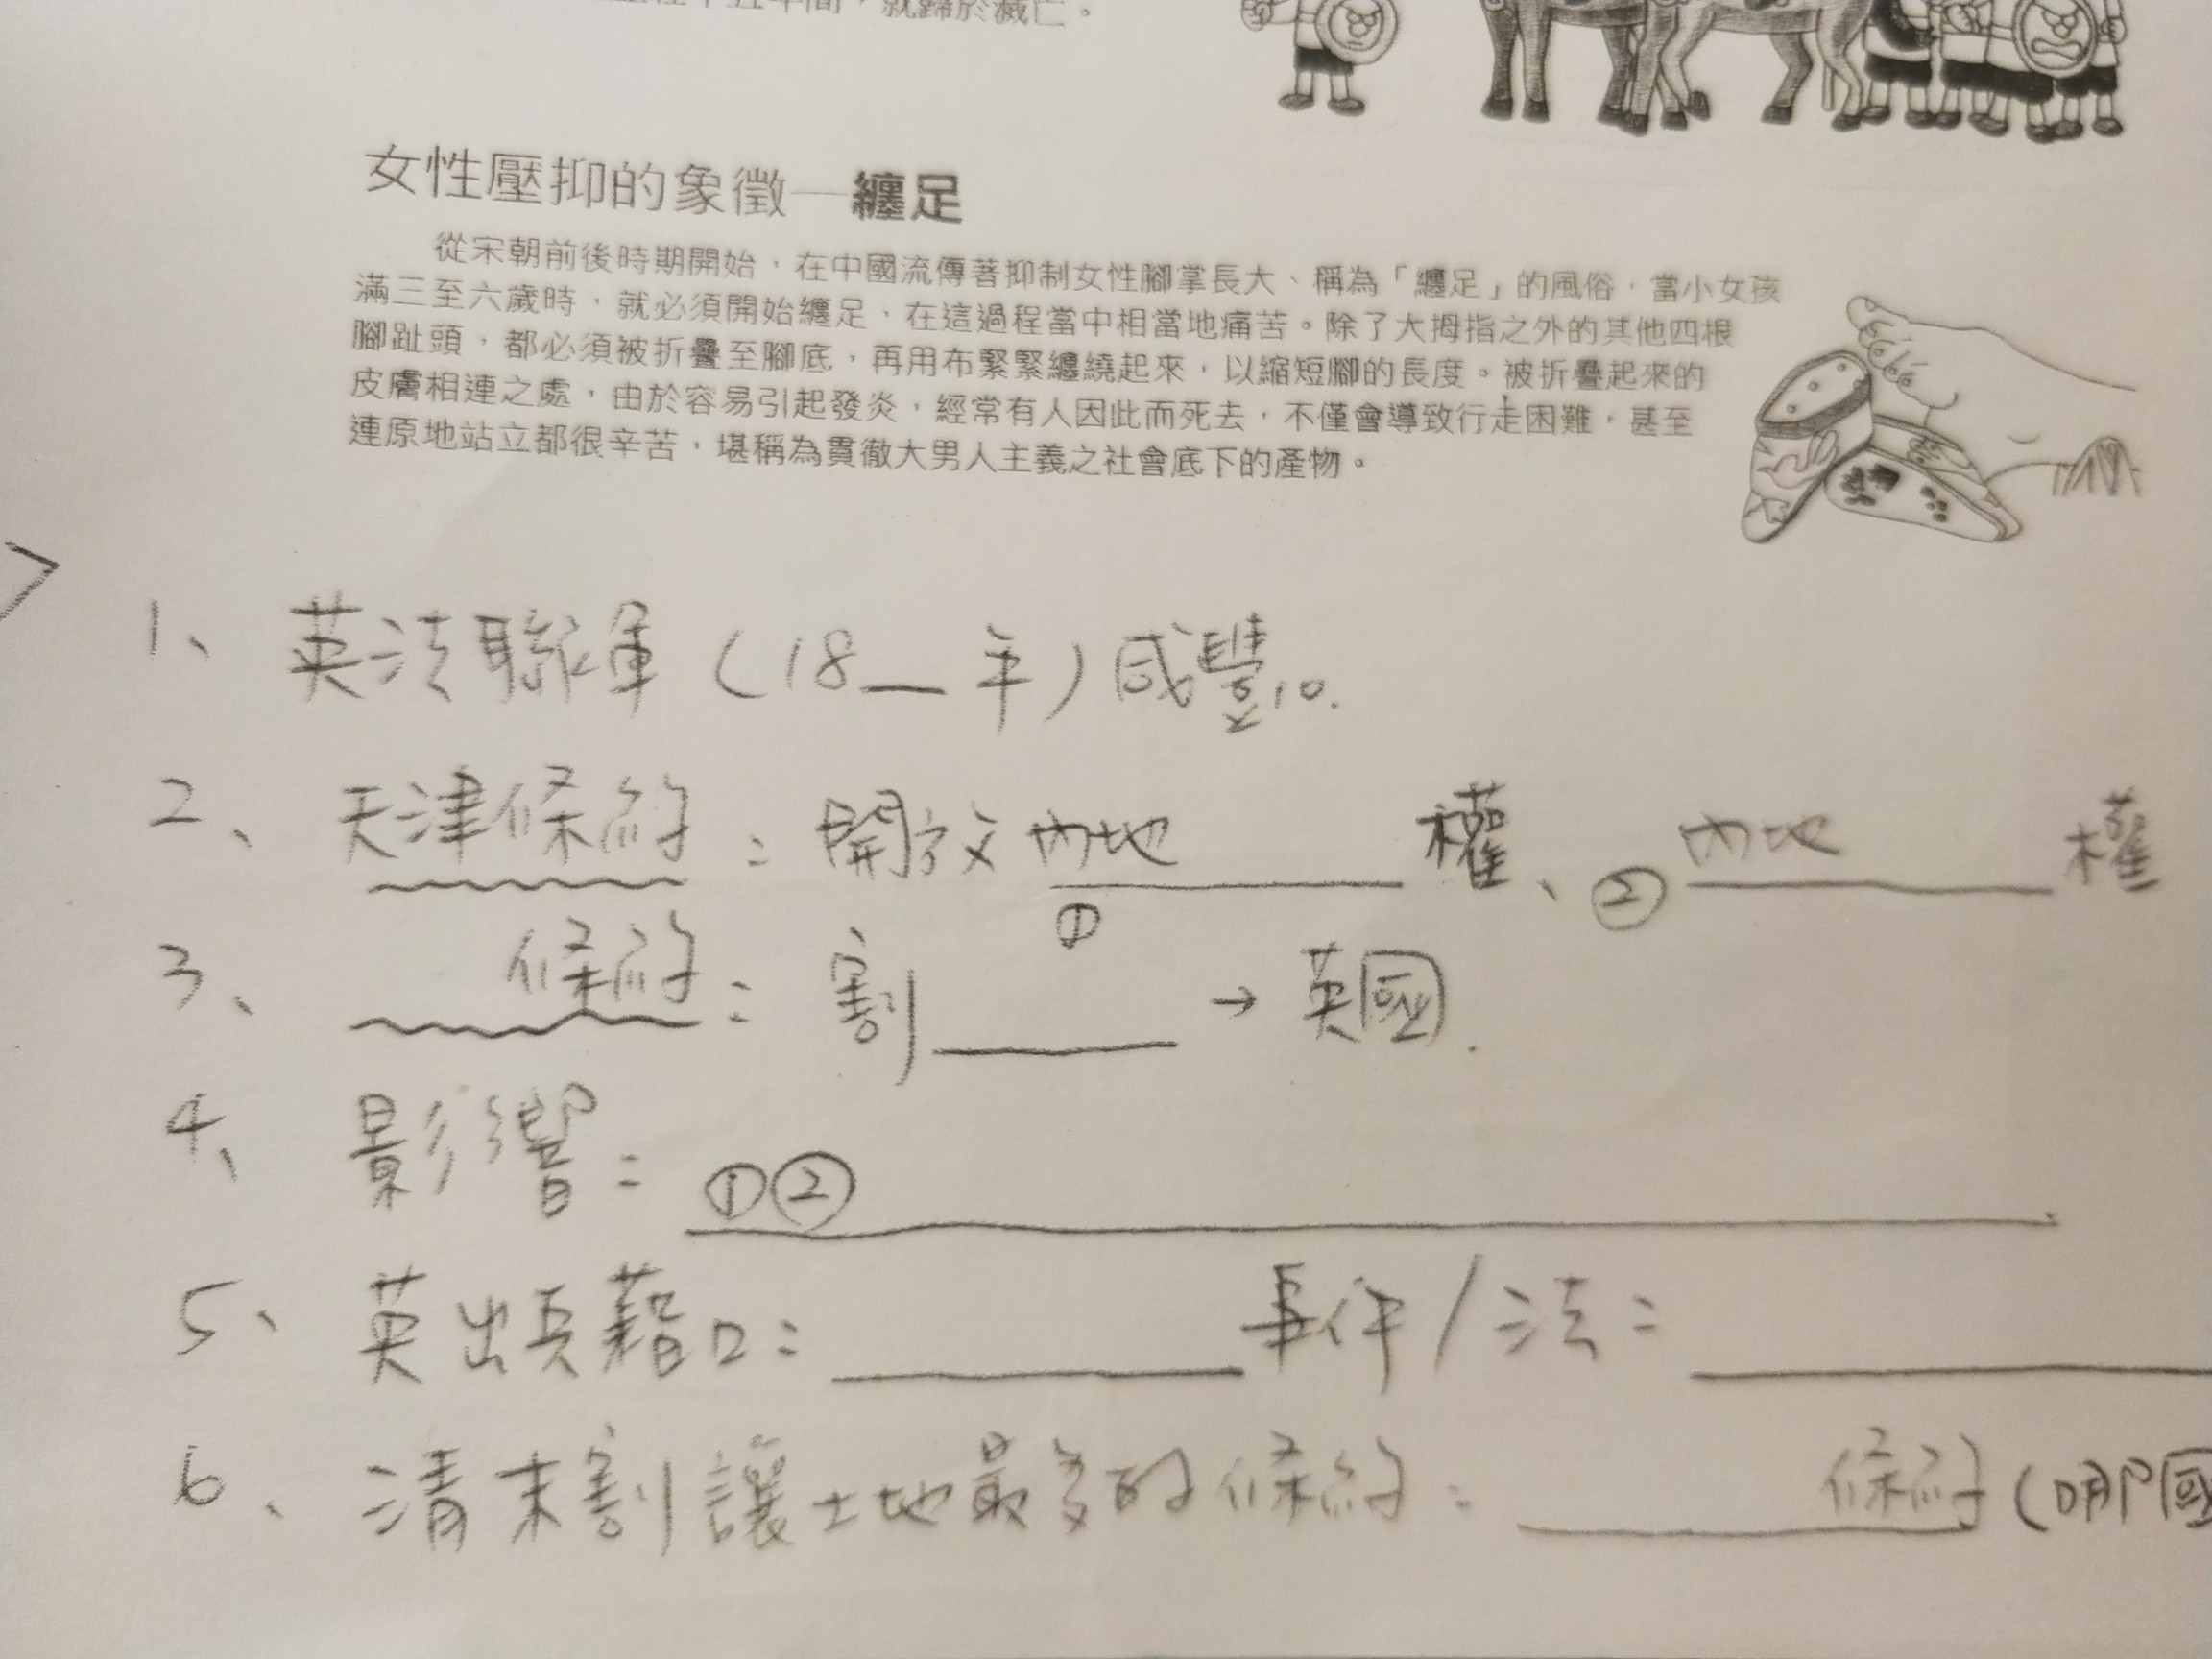 就歸於滅亡。
女性壓抑的象徵—纏足
從宋朝前後時期開始，在中國流傳著抑制女性腳掌長大、稱為「纏足」的風俗，當小女孩
滿三至六歲時，就必須開始纏足，在這過程當中相當地痛苦。除了大拇指之外的其他四根
腳趾頭，都必須被折疊至腳底，再用布緊緊纏繞起來，以縮短腳的長度。被折疊起來的
皮膚相連之處，由於容易引起發炎，經常有人因此而死去，不僅會導致行走困難，甚至
連原地站立都很辛苦，堪稱為貫徹大男人主義之社會底下的產物。
1、英法聯軍（18__年）咸豐10.
2、天津條約：開放內地____權、②內地____權
①
3、____條約：割____→英國.
4、影響：①②____.
5、英出兵藉口：____事件/法：____
6、清末割讓土地最多的條約：____條約（哪國